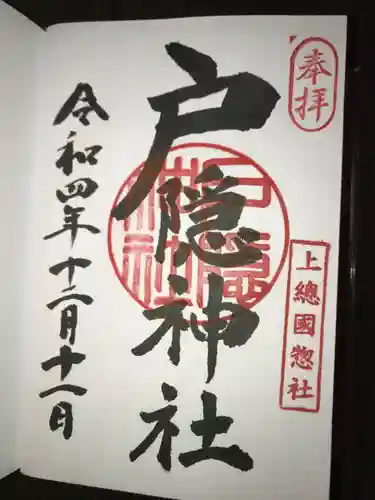 奉拝
上總國惣社
戸隠神社
戸隠神社
令和四年十二月十一日